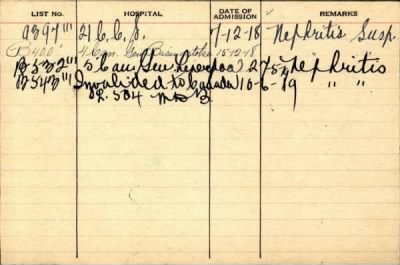 LIST No. HOSPITAL DATE OF ADMISSION REMARKS
A397''' 21 C.C.S. 7-12-18 Nephritis Susp.
B400' 4 Can. Genl Basingstoke 15-12-18
B532''' 5 Can Gen Liverpool Nephritis
B543''' Invalided to Canada 10-6-19 " "
L.504